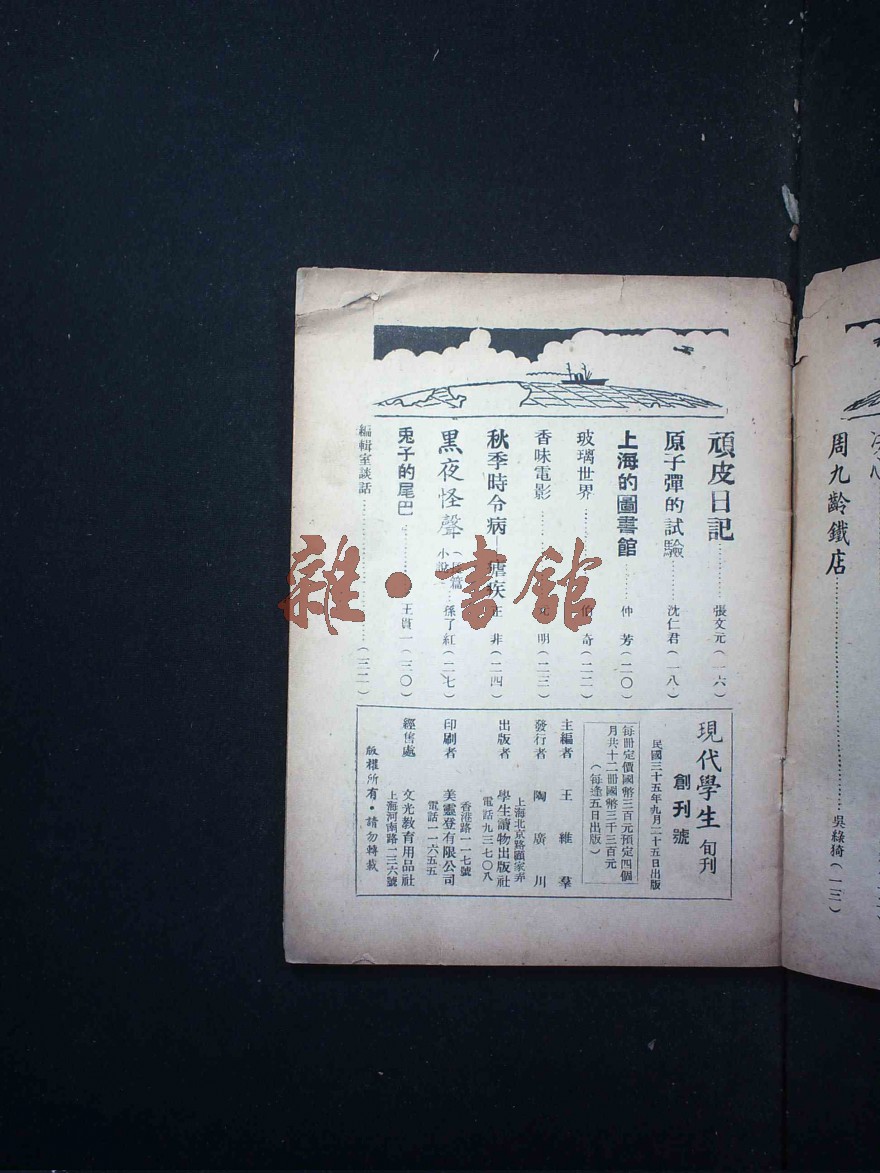 周九齡鐵店……吳綠猗(一三)
頑皮日記……張文元(一六)
原子彈的試驗……沈仁君(一八)
上海的圖書館……仲芳(二〇)
玻璃世界……伯奇(二二)
香味電影……明(二三)
秋季時令病—瘧疾 正非(二四)
黑夜怪聲(長篇小說)…孫了紅(二七)
兎子的尾巴……王貫一(三〇)
編輯室談話……(三二)
雜·書館
現代學生旬刊
創刊號
民國三十五年九月二十五日出版
每冊定價國幣三百元預定四個
月共十二冊國幣三千三百元
(每逢五日出版)
主編者 王維羣
發行者 陶廣川
上海北京路顧家弄
出版者 學生讀物出版社
電話九三七〇八
香港路一一七號
印刷者 美靈登有限公司
電話一一六五五
經售處 文光教育用品社
上海河南路一三六號
版權所有·請勿轉載